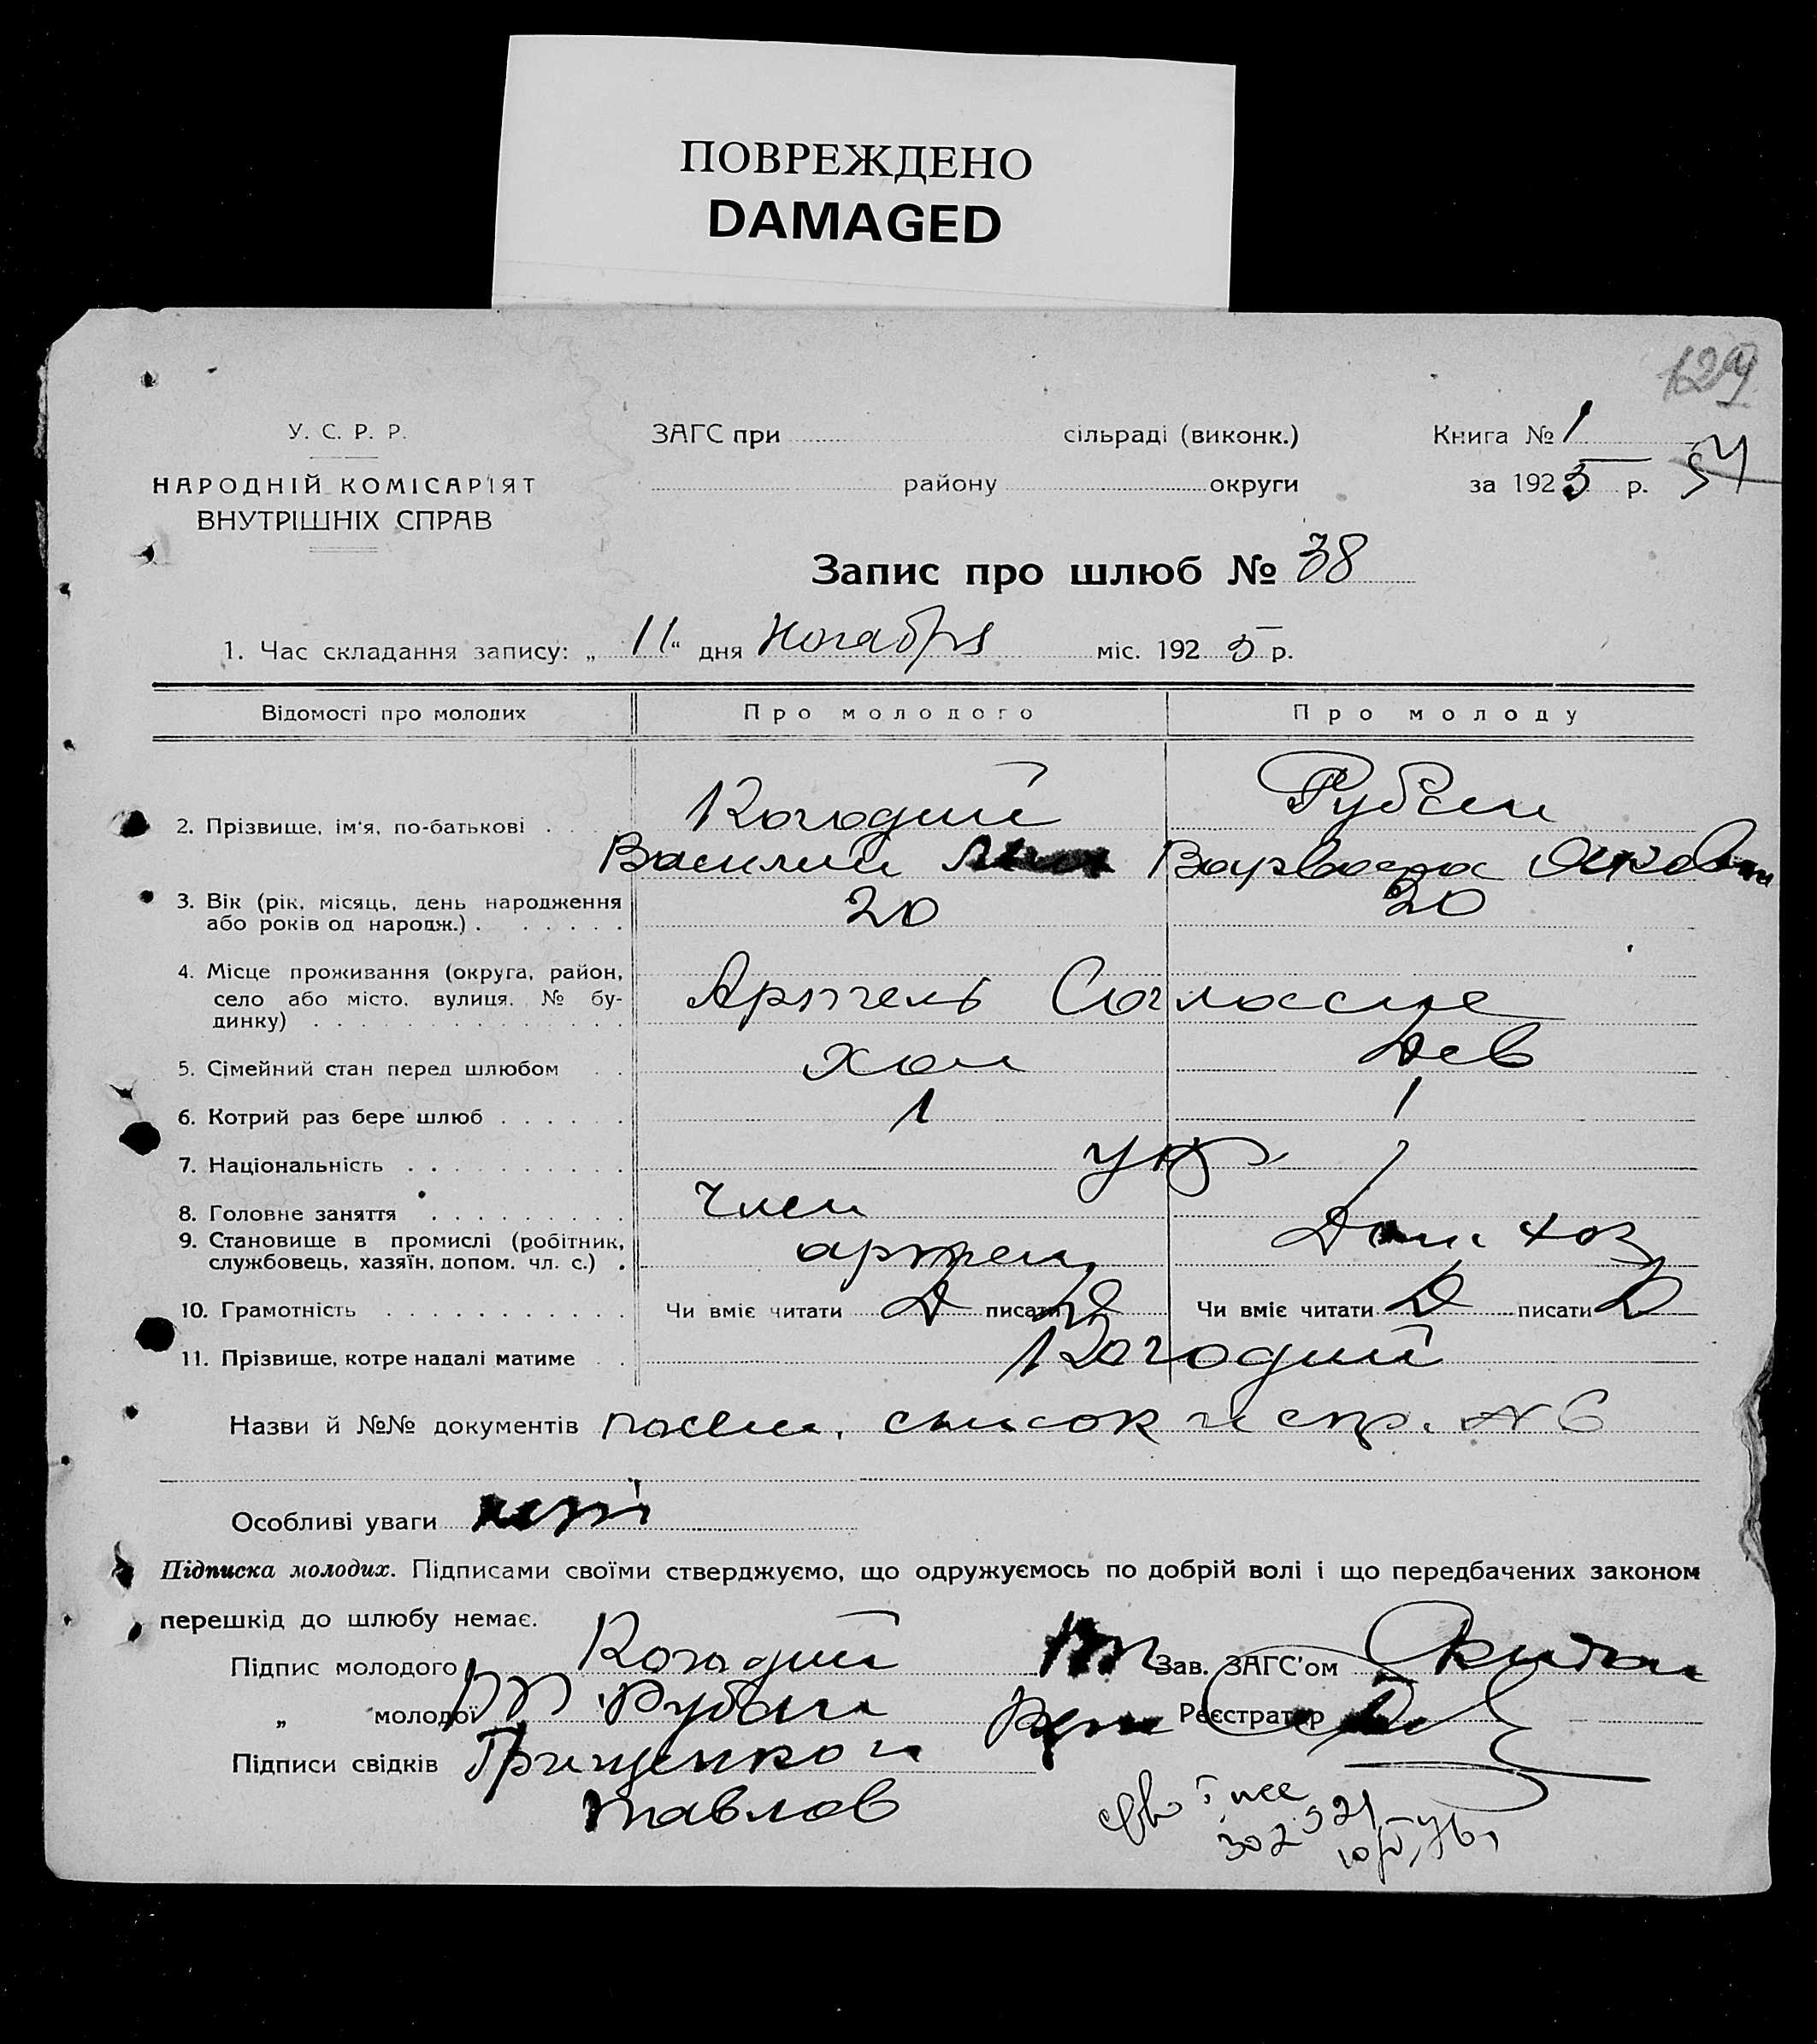 ПОВРЕЖДЕНО
DAMAGED
129
У. С. Р. Р.
НАРОДНІЙ КОМІСАРІЯТ
ВНУТРІШНІХ СПРАВ
ЗАГС при сільраді (виконк.)
району округи
Книга № 1
за 1925 р.
54
Запис про шлюб № 38
1. Час складання запису: „11“ дня Ноября міс. 1925 р.
Відомості про молодих Про молодого Про молоду
2. Прізвище, ім'я, по-батькові . Когодий Рубан
Василий Варвара
3. Вік (рік, місяць, день народження 20 20
або років од народж.) . . . . . .
4. Місце проживання (округа, район,
село або місто, вулиця, № бу- Артель Согласие
динку) . . . . . . . . . . . . . .
5. Сімейний стан перед шлюбом . . хол дев
6. Котрий раз бере шлюб . . . . . . 1 1
7. Національність . . . . . . . . . . укр
8. Головне заняття . . . . . . . . . член
9. Становище в промислі (робітник, Дом. хоз
службовець, хазяїн, допом. чл. с.) . артели
10. Грамотність . . . . . . . . . . . Чи вміє читати Д писати Д Чи вміє читати Д писати Д
11. Прізвище, котре надалі матиме . . Когодий
Назви й №№ документів посем. список и стр. № 6
Особливі уваги нет
Підписка молодих. Підписами своїми стверджуємо, що одружуємось по добрій волі і що передбачених законом
перешкід до шлюбу немає.
Підпис молодого Когодий Зав. ЗАГС'ом
„ молодої Рубан Реєстратор
Підписи свідків Грищенко и
Павлов